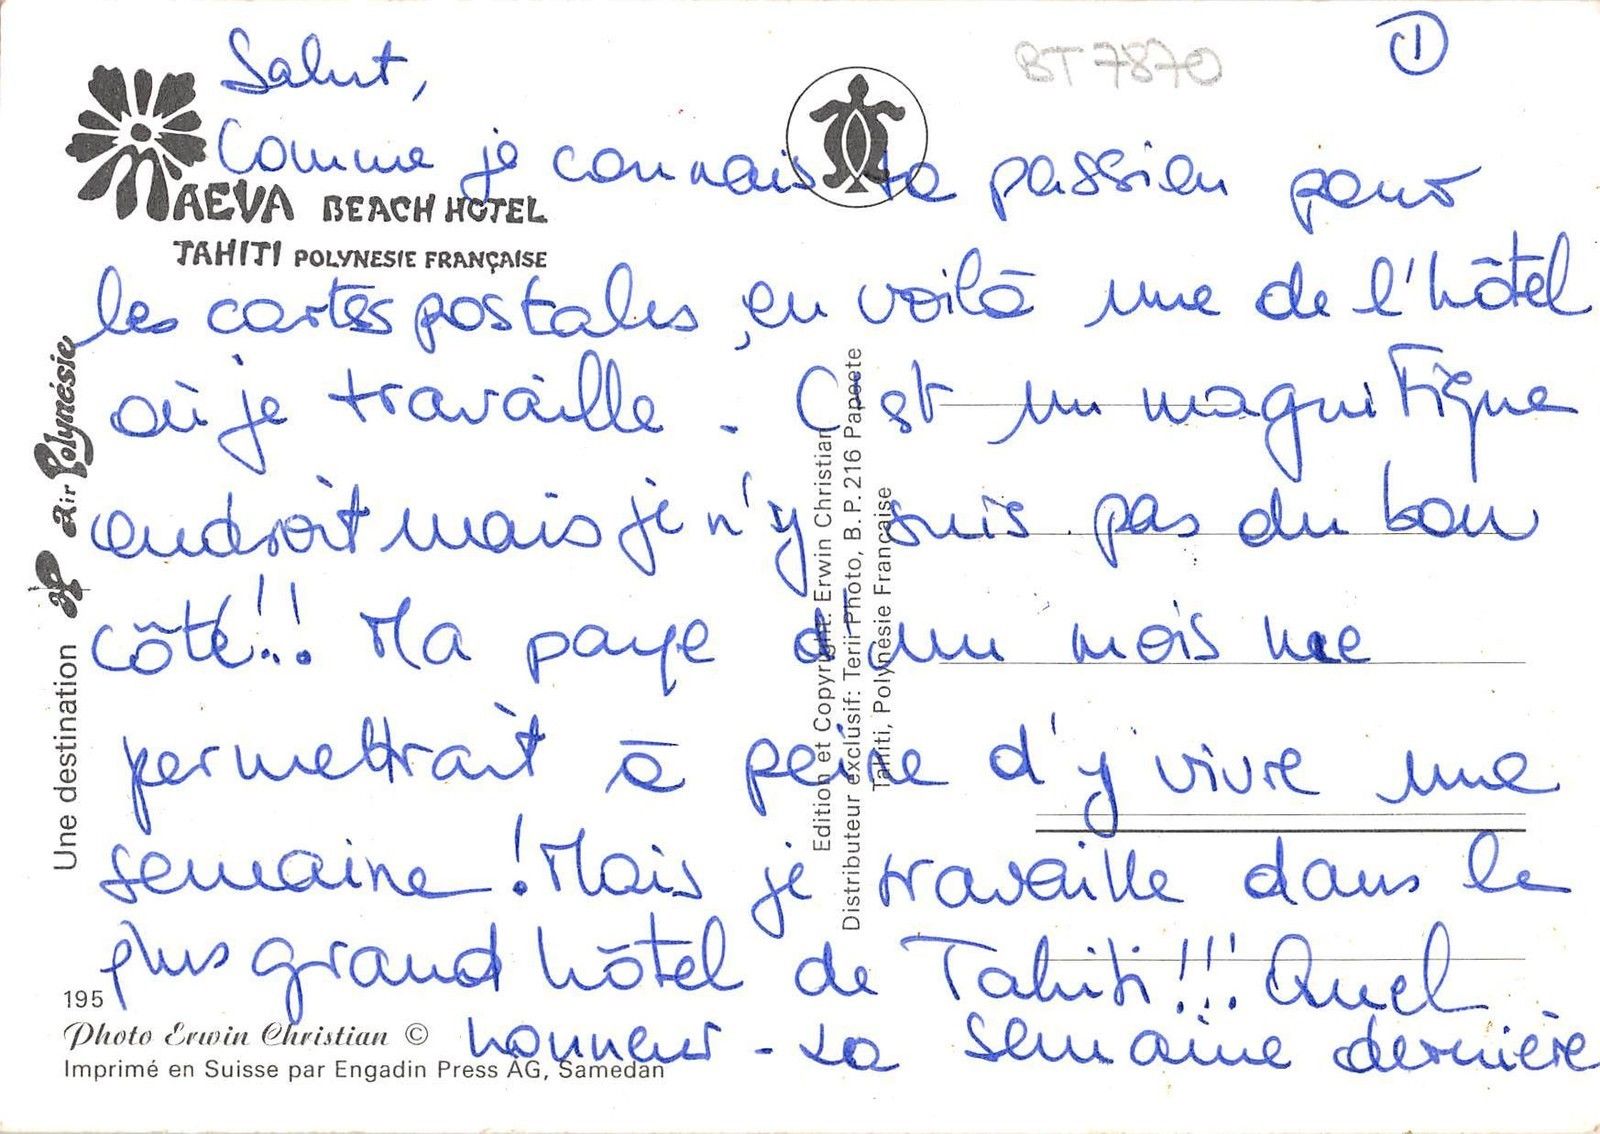 ①
BT 7870
Salut,
Comme je connais ta passion pour
MAEVA BEACH HOTEL
TAHITI POLYNESIE FRANÇAISE
les cartes postales, en voilà une de l'hôtel
où je travaille. C'est un magnifique
endroit mais je n'y suis pas du bon
côté!! Ma paye d'un mois me
permettrait à peine d'y vivre une
semaine! Mais je travaille dans le
plus grand hôtel de Tahiti!!! Quel
honneur. La semaine dernière
Une destination air Polynésie
Edition et Copyright: Erwin Christian
Distributeur exclusif: Terii Photo, B.P. 216 Papeete
Tahiti, Polynésie Française
195
Photo Erwin Christian ©
Imprimé en Suisse par Engadin Press AG, Samedan